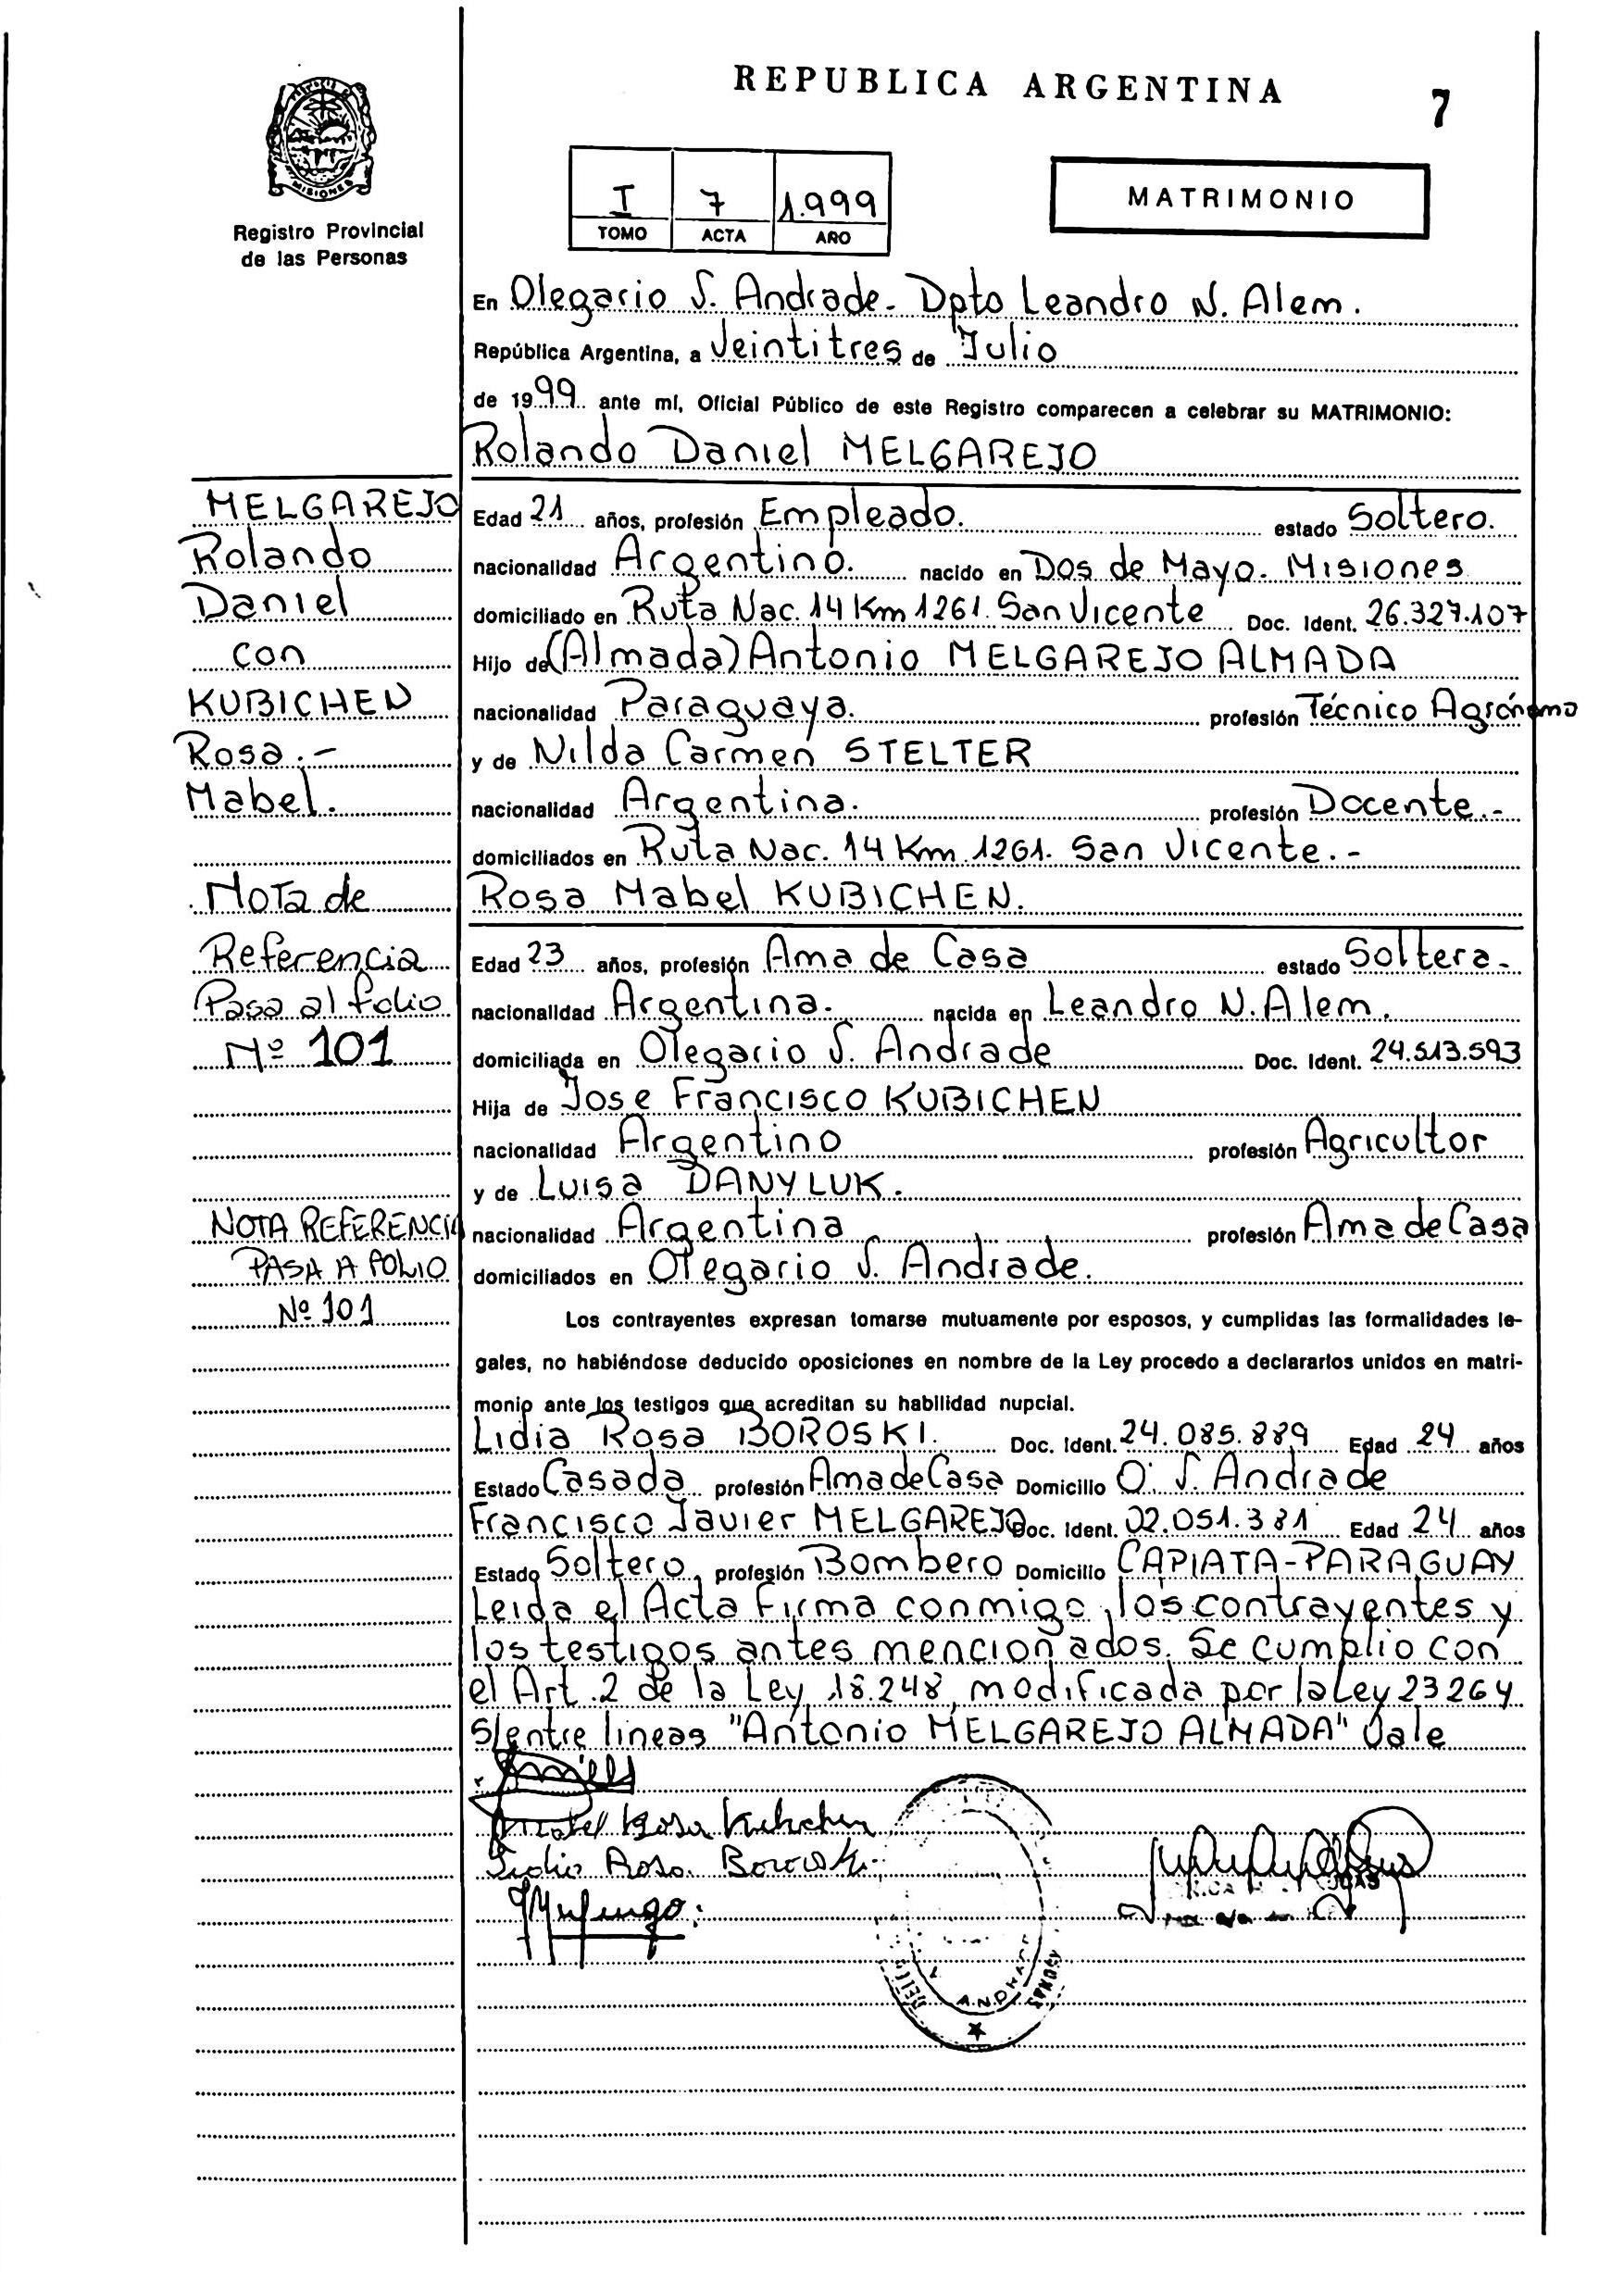 REPUBLICA ARGENTINA
7
MISIONES
Registro Provincial
de las Personas
I 7 1.999
TOMO ACTA AÑO
MATRIMONIO
En Olegario V. Andrade. Dpto Leandro N. Alem.
República Argentina, a Veintitres de Julio
de 1999 ante mí, Oficial Público de este Registro comparecen a celebrar su MATRIMONIO:
Rolando Daniel MELGAREJO
MELGAREJO
Rolando
Daniel
con
KUBICHEN
Rosa.-
Mabel.
Nota de
Referencia
Pasa al folio
Nº 101
NOTA REFERENCIA
PASA A FOLIO
Nº 101
Edad 21 años, profesión Empleado. estado Soltero.
nacionalidad Argentino. nacido en Dos de Mayo. Misiones
domiciliado en Ruta Nac. 14 Km 1261. San Vicente Doc. Ident. 26.327.107
Hijo de (Almada) Antonio MELGAREJO ALMADA
nacionalidad Paraguaya. profesión Técnico Agrónomo
y de Nilda Carmen STELTER
nacionalidad Argentina. profesión Docente.-
domiciliados en Ruta Nac. 14 Km 1261. San Vicente.-
Rosa Mabel KUBICHEN.
Edad 23 años, profesión Ama de Casa estado Soltera.
nacionalidad Argentina. nacida en Leandro N. Alem.
domiciliada en Olegario V. Andrade Doc. Ident. 24.513.593
Hija de Jose Francisco KUBICHEN
nacionalidad Argentino profesión Agricultor
y de Luisa DANYLUK.
nacionalidad Argentina profesión Ama de Casa
domiciliados en Olegario V. Andrade.
Los contrayentes expresan tomarse mutuamente por esposos, y cumplidas las formalidades le-
gales, no habiéndose deducido oposiciones en nombre de la Ley procedo a declararlos unidos en matri-
monio ante los testigos que acreditan su habilidad nupcial.
Lidia Rosa BOROSKI. Doc. Ident. 24.085.889 Edad 24 años
Estado Casada profesión Ama de Casa Domicilio O. V. Andrade
Francisco Javier MELGAREJO Doc. Ident. 02.051.381 Edad 24 años
Estado Soltero profesión Bombero Domicilio CAPIATA-PARAGUAY
Leida el Acta Firma conmigo, los contrayentes y
los testigos antes mencionados. Se cumplio con
el Art. 2 de la Ley 18.248, modificada por la Ley 23264
S/entre lineas "Antonio MELGAREJO ALMADA" Vale
Mabel Rosa Kubichen
Lidia Rosa Boroski